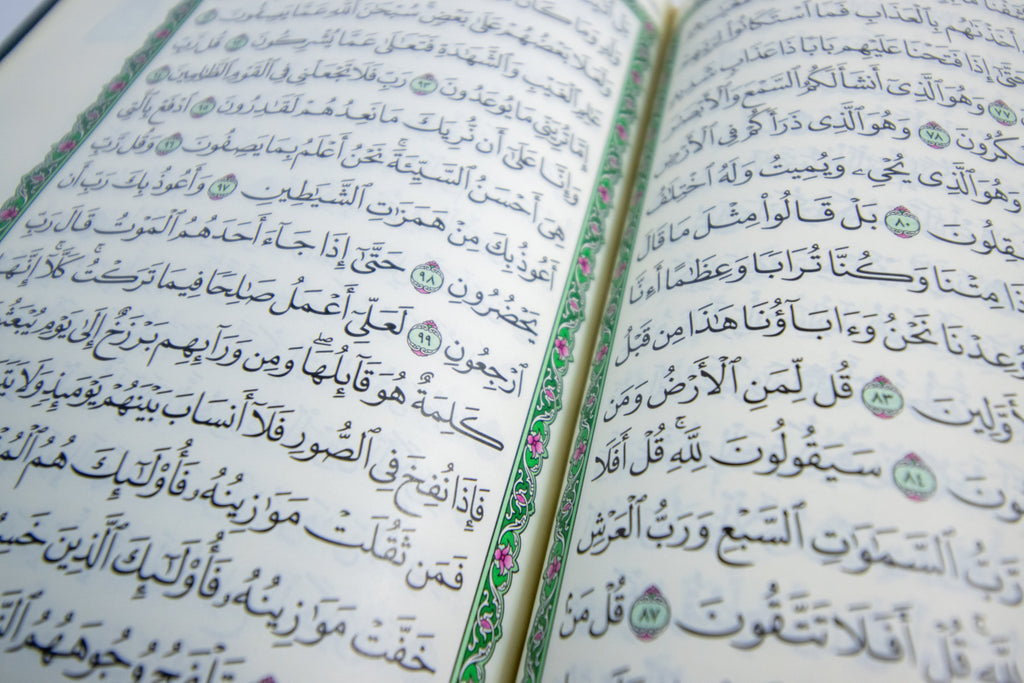 أَخَذْنَٰهُم بِٱلْعَذَابِ فَمَا ٱسْتَكَانُوا۟
حَتَّىٰٓ إِذَا فَتَحْنَا عَلَيْهِم بَابًا ذَا عَذَابٍ
٧٧ وَهُوَ ٱلَّذِىٓ أَنشَأَ لَكُمُ ٱلسَّمْعَ وَٱلْأَبْصَٰرَ
كُرُونَ ٧٨ وَهُوَ ٱلَّذِى ذَرَأَكُمْ فِى ٱلْأَرْضِ
وَهُوَ ٱلَّذِى يُحْىِۦ وَيُمِيتُ وَلَهُ ٱخْتِلَٰفُ
قِلُونَ ٨٠ بَلْ قَالُوا۟ مِثْلَ مَا قَالَ
ذَا مِتْنَا وَكُنَّا تُرَابًا وَعِظَٰمًا أَءِنَّا
وُعِدْنَا نَحْنُ وَءَابَآؤُنَا هَٰذَا مِن قَبْلُ
أَوَّلِينَ ٨٣ قُل لِّمَنِ ٱلْأَرْضُ وَمَن
ونَ ٨٤ سَيَقُولُونَ لِلَّهِ ۚ قُلْ أَفَلَا
رَبُّ ٱلسَّمَٰوَٰتِ ٱلسَّبْعِ وَرَبُّ ٱلْعَرْشِ
لِلَّهِ ۚ قُلْ أَفَلَا تَتَّقُونَ ٨٧ قُلْ مَنۢ
وَلَعَلَا بَعْضُهُمْ عَلَىٰ بَعْضٍ ۚ سُبْحَٰنَ ٱللَّهِ عَمَّا يَصِفُونَ ٩١
عَٰلِمِ ٱلْغَيْبِ وَٱلشَّهَٰدَةِ فَتَعَٰلَىٰ عَمَّا يُشْرِكُونَ ٩٢ قُل رَّبِّ
إِمَّا تُرِيَنِّى مَا يُوعَدُونَ ٩٣ رَبِّ فَلَا تَجْعَلْنِى فِى ٱلْقَوْمِ ٱلظَّٰلِمِينَ ٩٤
وَإِنَّا عَلَىٰٓ أَن نُّرِيَكَ مَا نَعِدُهُمْ لَقَٰدِرُونَ ٩٥ ٱدْفَعْ بِٱلَّتِى
هِىَ أَحْسَنُ ٱلسَّيِّئَةَ ۚ نَحْنُ أَعْلَمُ بِمَا يَصِفُونَ ٩٦ وَقُل رَّبِّ
أَعُوذُ بِكَ مِنْ هَمَزَٰتِ ٱلشَّيَٰطِينِ ٩٧ وَأَعُوذُ بِكَ رَبِّ أَن
يَحْضُرُونِ ٩٨ حَتَّىٰٓ إِذَا جَآءَ أَحَدَهُمُ ٱلْمَوْتُ قَالَ رَبِّ
ٱرْجِعُونِ ٩٩ لَعَلِّىٓ أَعْمَلُ صَٰلِحًا فِيمَا تَرَكْتُ ۚ كَلَّآ ۚ إِنَّهَا
كَلِمَةٌ هُوَ قَآئِلُهَا ۖ وَمِن وَرَآئِهِم بَرْزَخٌ إِلَىٰ يَوْمِ يُبْعَثُ
فَإِذَا نُفِخَ فِى ٱلصُّورِ فَلَآ أَنسَابَ بَيْنَهُمْ يَوْمَئِذٍ وَلَا
فَمَن ثَقُلَتْ مَوَٰزِينُهُۥ فَأُو۟لَٰٓئِكَ هُمُ ٱلْمُ
خَفَّتْ مَوَٰزِينُهُۥ فَأُو۟لَٰٓئِكَ ٱلَّذِينَ خَسِ
تَلْفَحُ وُجُوهَهُمُ